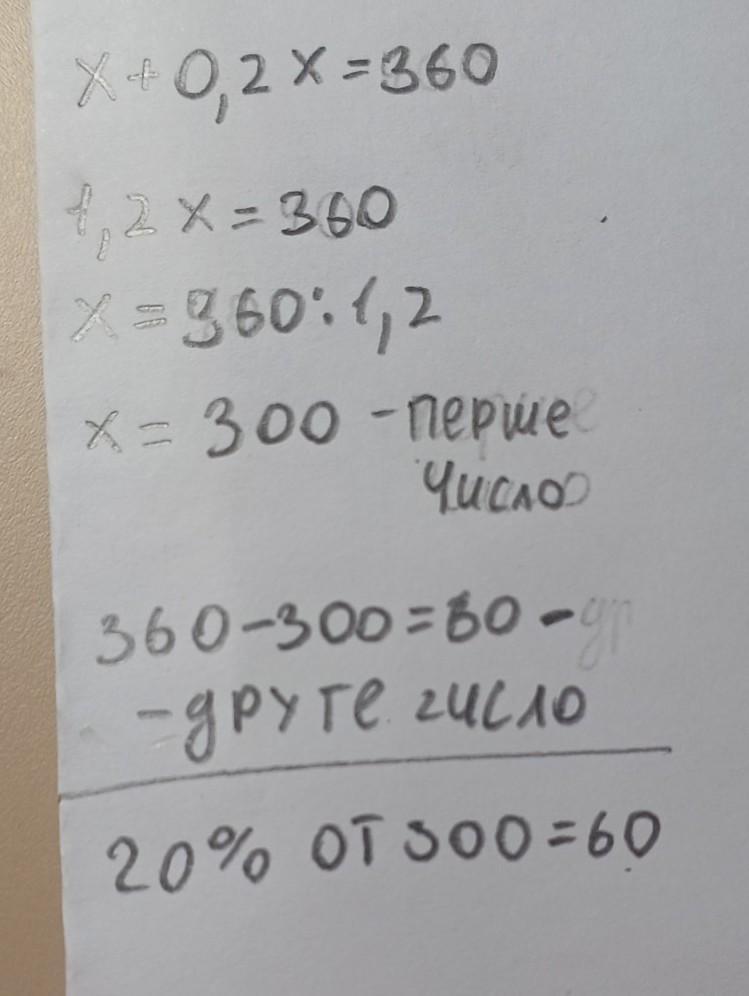 x+0,2x=360
1,2x=360
x=360:1,2
x=300 -перше
число
360-300=60-др
-друге число
20% от 300=60